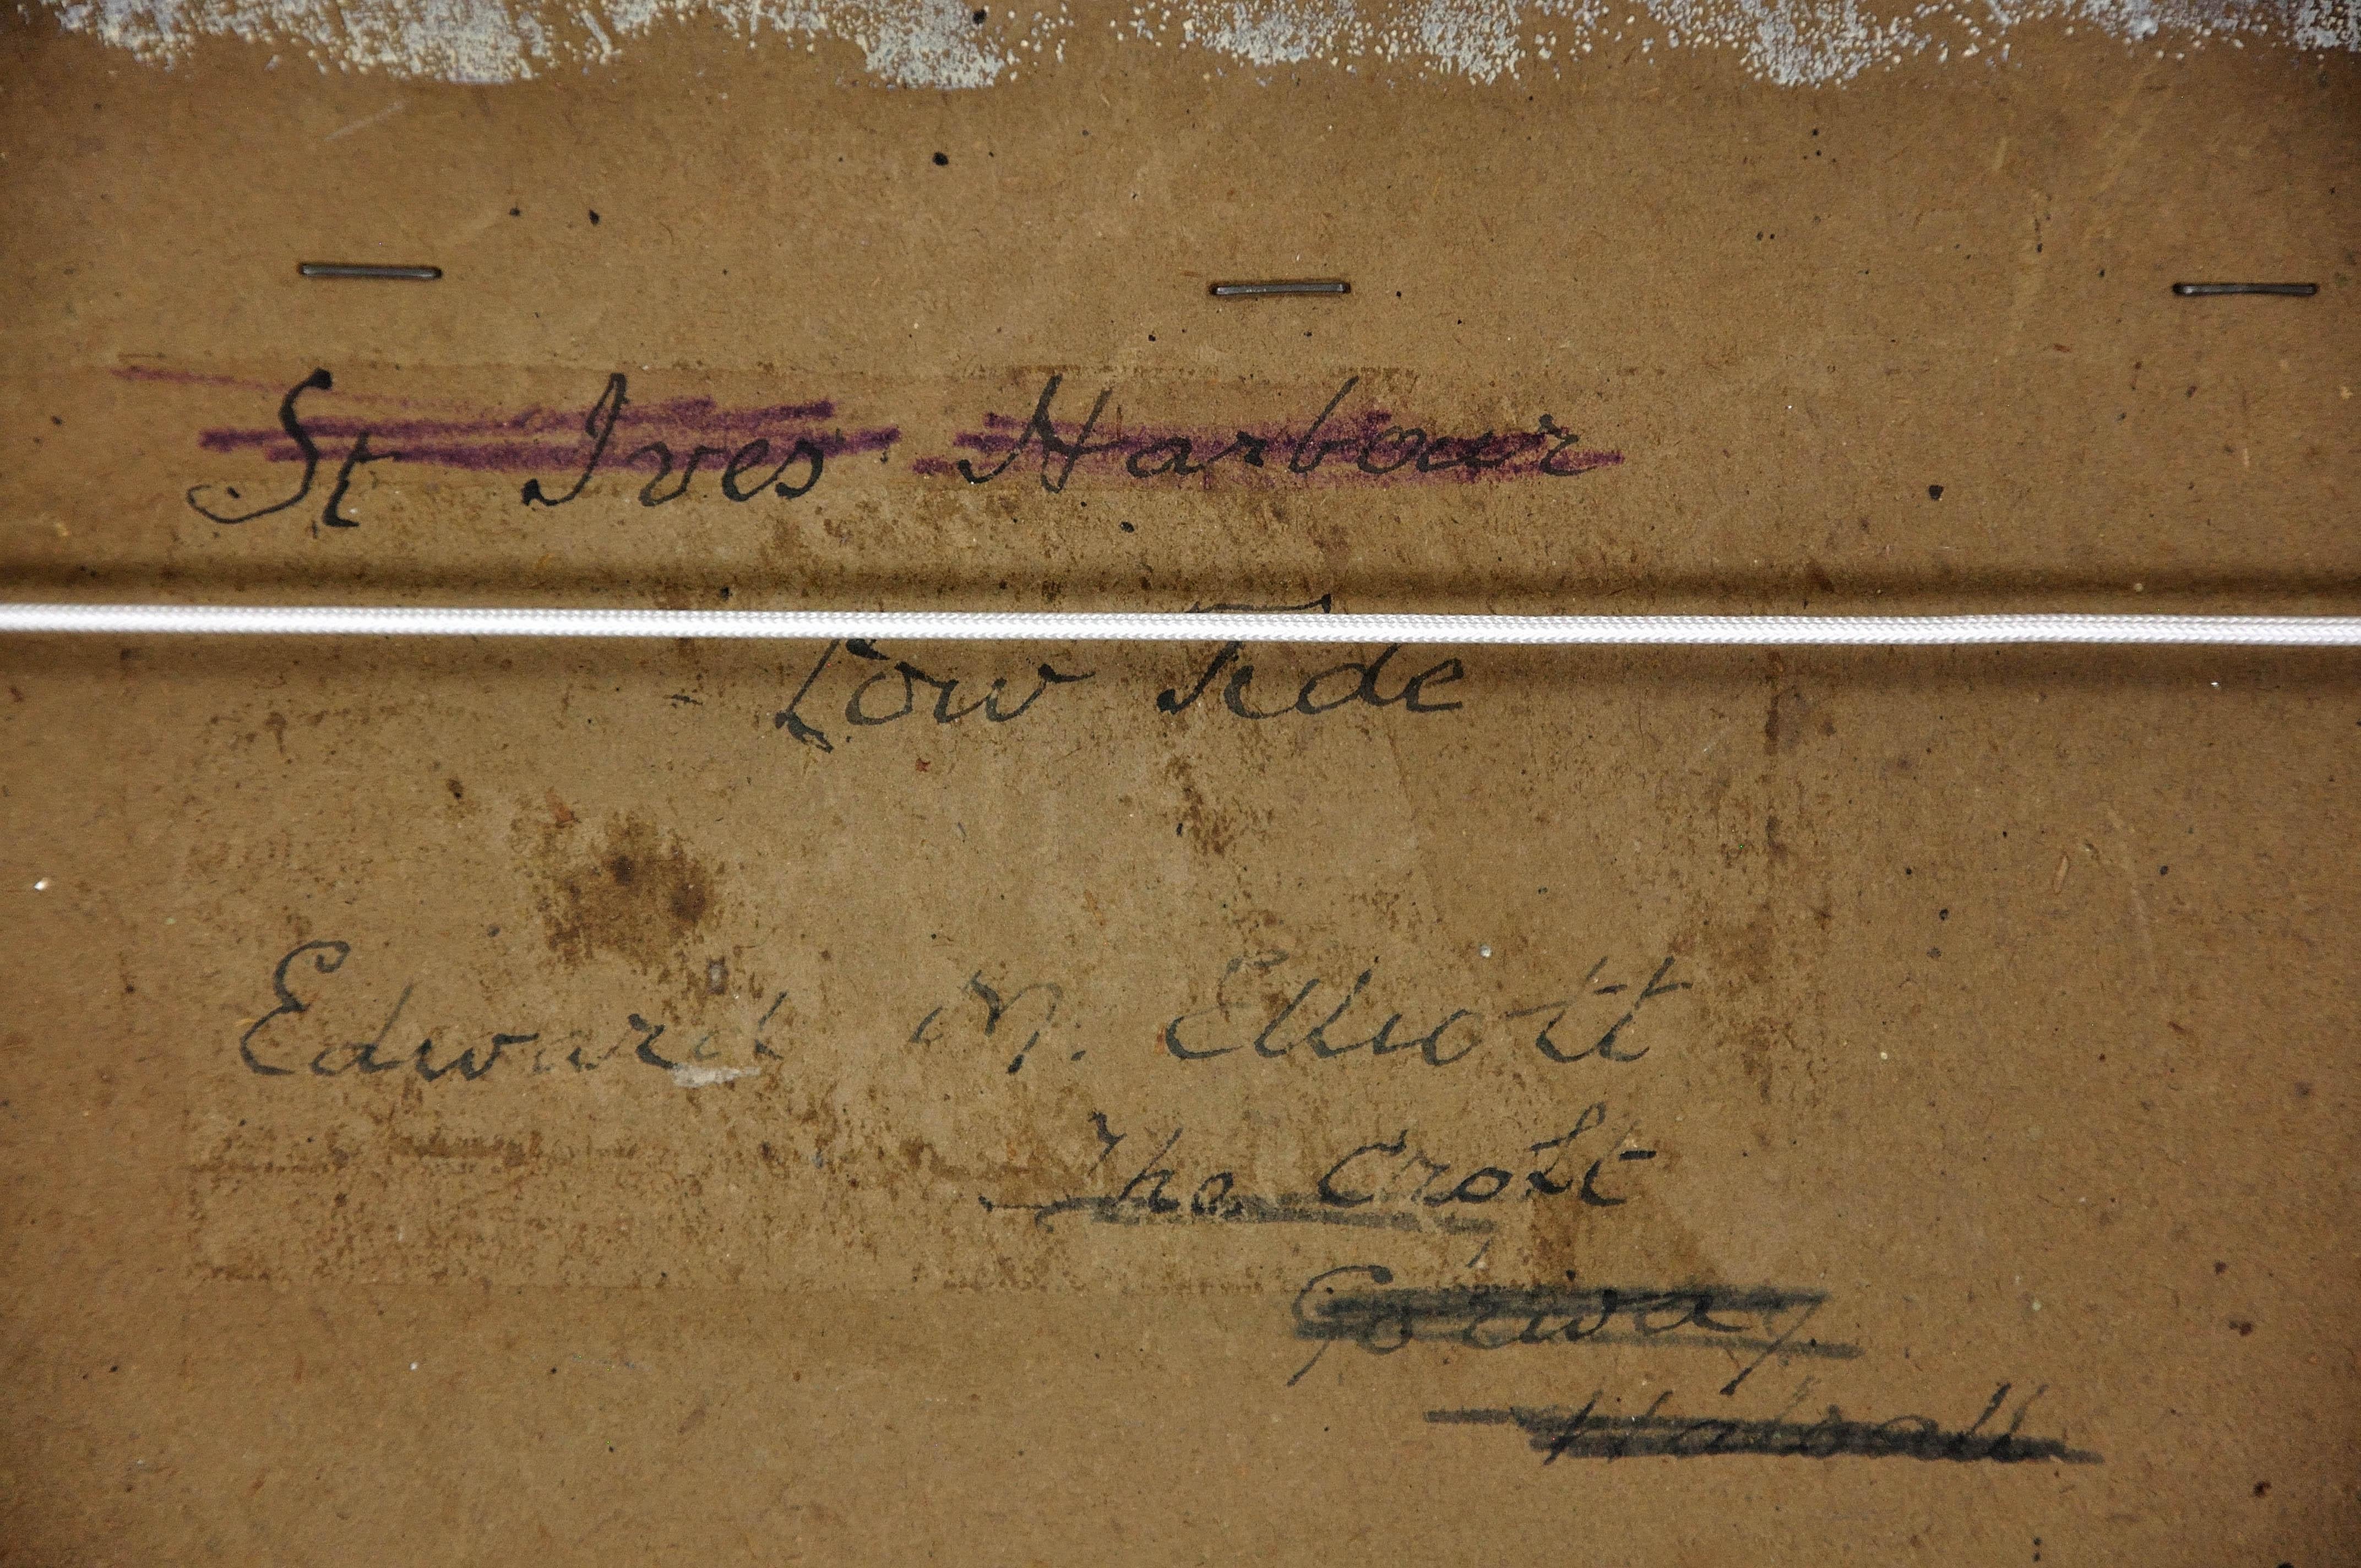 St Ives Harbour
Low Tide
Edward M. Elliott
The Croft
Gorway
Walsall